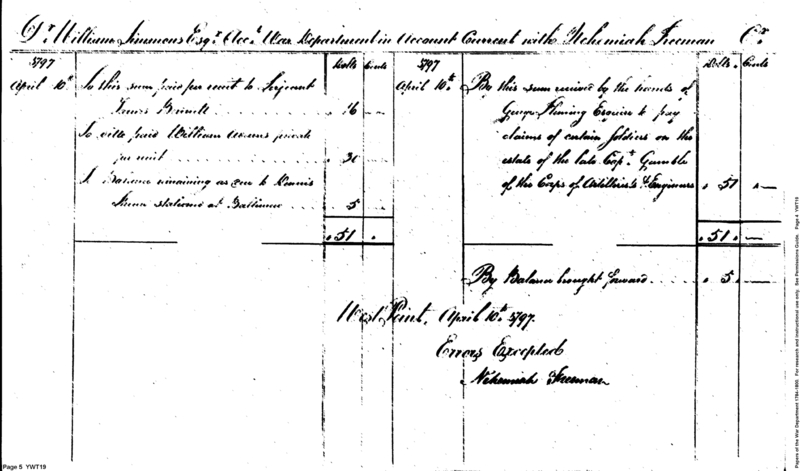 Dr. William Simmons Esqr. Acct. War Department in Account Current with Nehemiah Freeman Cr.
1797 Dolls Cents 1797 Dolls. Cents
April 10th To this sum paid per receipt to Serjeant
James
16
To ditto paid William private
per receipt
30
To Balance remaining as due to Dennis
stationed at Baltimore
5
51
April 10th. By this sum received by the hands of
George Fleming Esquire to pay
claims of certain soldiers on the
estate of the late Capt. Gamble
of the Corps of Artillerists & Engineers 51
51
By Balance brought forward 5
West Point, April 10th. 1797.
Errors Excepted
Nehemiah Freeman
Page 5 YWT19
Papers of the War Department 1784-1800. For research and instructional use only. See Permissions Guide. Page 4 YWT19